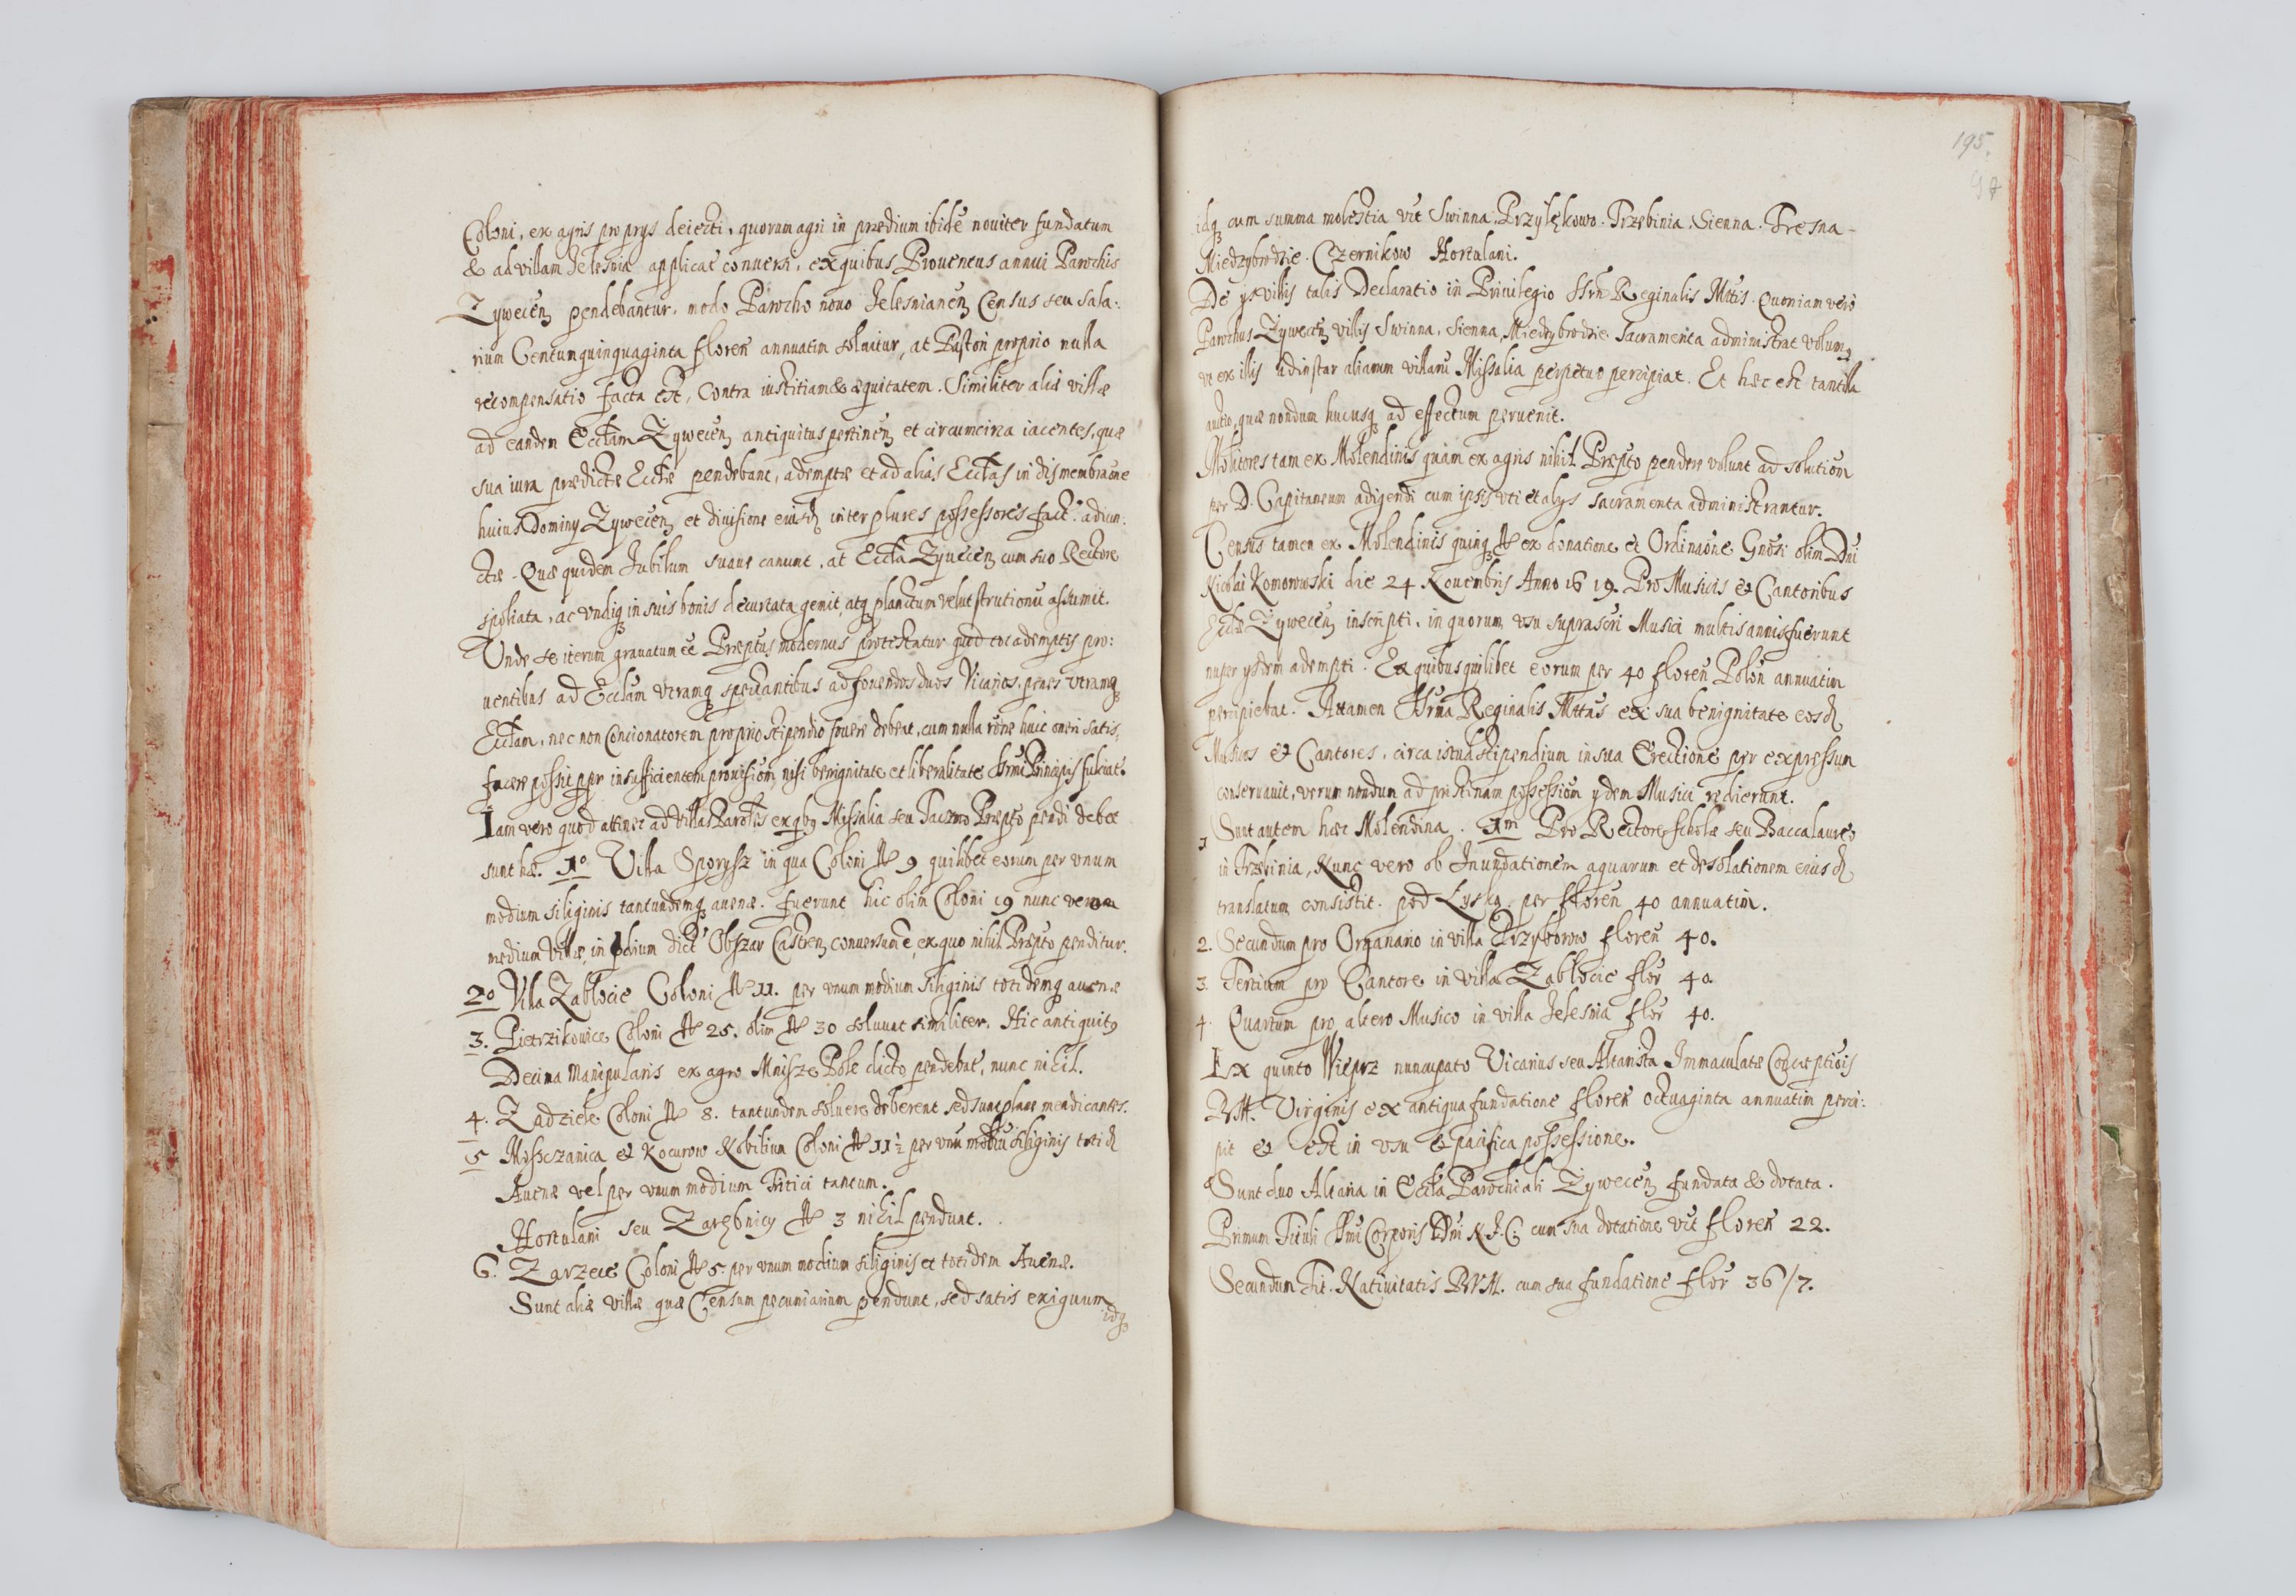 Coloni, ex agris proprys deiecti, quorum agri in prædium ibidē noviter fundatum
& ad villam Jelesnia applicat conversi, ex quibus Proventus annui Parochis
Zywecen pendebantur, modo Parocho novo Jelesnianen Census seu sala:
rium Centum quinquaginta floren annuatim solvitur, at Pastori proprio nulla
recompensatio facta est, Contra iustitiam & æquitatem. Similiter aliæ villæ
ad eandem Eccłam Zywecen antiquitus pertinen et circumcirca iacentes, quæ
sua iura prædictæ Eccłæ pendebant, ademptæ et ad alias Eccłas in dismembraōne
huius Dominy Zywecen et divisione eiusd inter plures possessores fact: adiun:
ctæ. Quæ quidem Jubilum suave canunt, at Eccła Zywecen cum suo Rectore
spoliata, ac undiq in suis bonis decurtata gemit, atq planctum velut strutionū assumit.
Unde se iterum gravatum ēē Præptus modernus protestatur quod tot ademptis pro:
ventibus ad Eccłam utramq spectantibus ad fovendos duos Vicarios, penes utramq
Eccłam, nec non Concionatorem proprio stipendio fovere debeat, cum nulla rōne huic oneri satis,
facere possit ppr insufficientem provisiom, nisi benignitate et liberalitate Jłłrmi Principis fulciat.
Iam vero quod attinet ad Villas Parołes ex qbg Missalia seu Præpto pendi debet
sunt hæ. 1º Villa Sporysz in qua Coloni Nº 9 quilibet eorum per unum
modium siliginis tantundemq avenæ. fuerunt hic olim Coloni 19 nunc vero
medium Villæ, in pdium dict Obszar Castren conversum ē, ex quo nihil Præpto penditur.
2º Villa Zablocie Coloni Nº 11. per unum modium siliginis totidemq avenæ
3. Pietrzikowice Coloni Nº 25. olim Nº 30 solvunt similiter. Hic antiquitg
Decima Manipularis ex agro Mnisze Pole dicto pendebat, nunc nihil.
4. Zadziele Coloni Nº 8. tantundem solvere deberent sed sunt plane mendicantes.
5 Moszczanica et Kocurow Nobilium Coloni Nº 11½ per unū modiū siliginis totid
Avenæ vel per unum modium Tritici tantum.
Hortulani seu Zarębnicy Nº 3 nihil pendunt.
6. Zarzece Coloni Nº 5. per unum modium siliginis et totidem Avenæ.
Sunt aliæ villæ quæ Censum pecuniarium pendunt, sed satis exiguum
idq
195.
idq cum summa molestia ut Swinna. Przylękowo. Trzebinia. Sienna. Tresna
Miedzybrodzie. Czernikow Hortulani.
De ys villis talis Declaratio in Privilegio Reginalis Mttis. Quoniam vero
Parochus Zywecen villis Swinna, Sienna, Miedzybrodzie Sacramenta administrat volumg
ut ex illis adinstar aliarum villarū Missalia perpetuo percipiat. Et hæc est tantilla
auctio, quæ nondum hucusq ad effectum pervenit.
Molitores tam ex Molendinis quam ex agris nihil Præpto pendere volunt ad solutiom
per D. Capitaneum adigendi cum ipsis uti et alys sacramenta administrantur.
Census tamen ex Molendinis quinq Nº ex donatione et Ordinaōne Gnōsi olim Dni
Nicolai Komorowski die 24 Novembris Anno 1619. Pro Musicis et Cantoribus
Eccłæ Zywecen inscripti, in quorum usu suprascri Musici multis annis fuerunt
nuper ydem adempti. Ex quibus quilibet eorum per 40 floren Polon annuatim
percipiebat. Attamen Reginalis Mttas ex sua benignitate eosd
Musicos et Cantores, circa istud stipendium in sua Erectione per expressum
conservavit, verum nondum ad pristinam possessiom ydem Musici redierunt.
1 Sunt autem hæc Molendina. 1m Pro Rectore Scholæ seu Baccalaureo
in Trzebinia, Nunc vero ob Inundationem aquarum et desolationem eiusd
translatum consistit. pod Lyską. per floren 40 annuatim.
2. Secundum pro Organario in villa Przyborow floren 40.
3. Tertium pro Cantore in villa Zablocie flor 40.
4. Quartum pro altero Musico in villa Jelesnia flor 40.
Ex quinto Wieprz nuncupato Vicarius seu Altarista Immaculatæ Conceptiois
B.M. Virginis ex antiqua fundatione floren octuaginta annuatim perci:
pit et est in usu & pacifica possessione.
Sunt duo Altaria in Eccła Parochiali Zywecen fundata & dotata.
Primum Tituli Ssmi Corporis Dni N.J.C. cum sua dotatione ut floren 22.
Secundum Tit. Nativitatis B.V.M. cum sua fundatione flor 36/7.